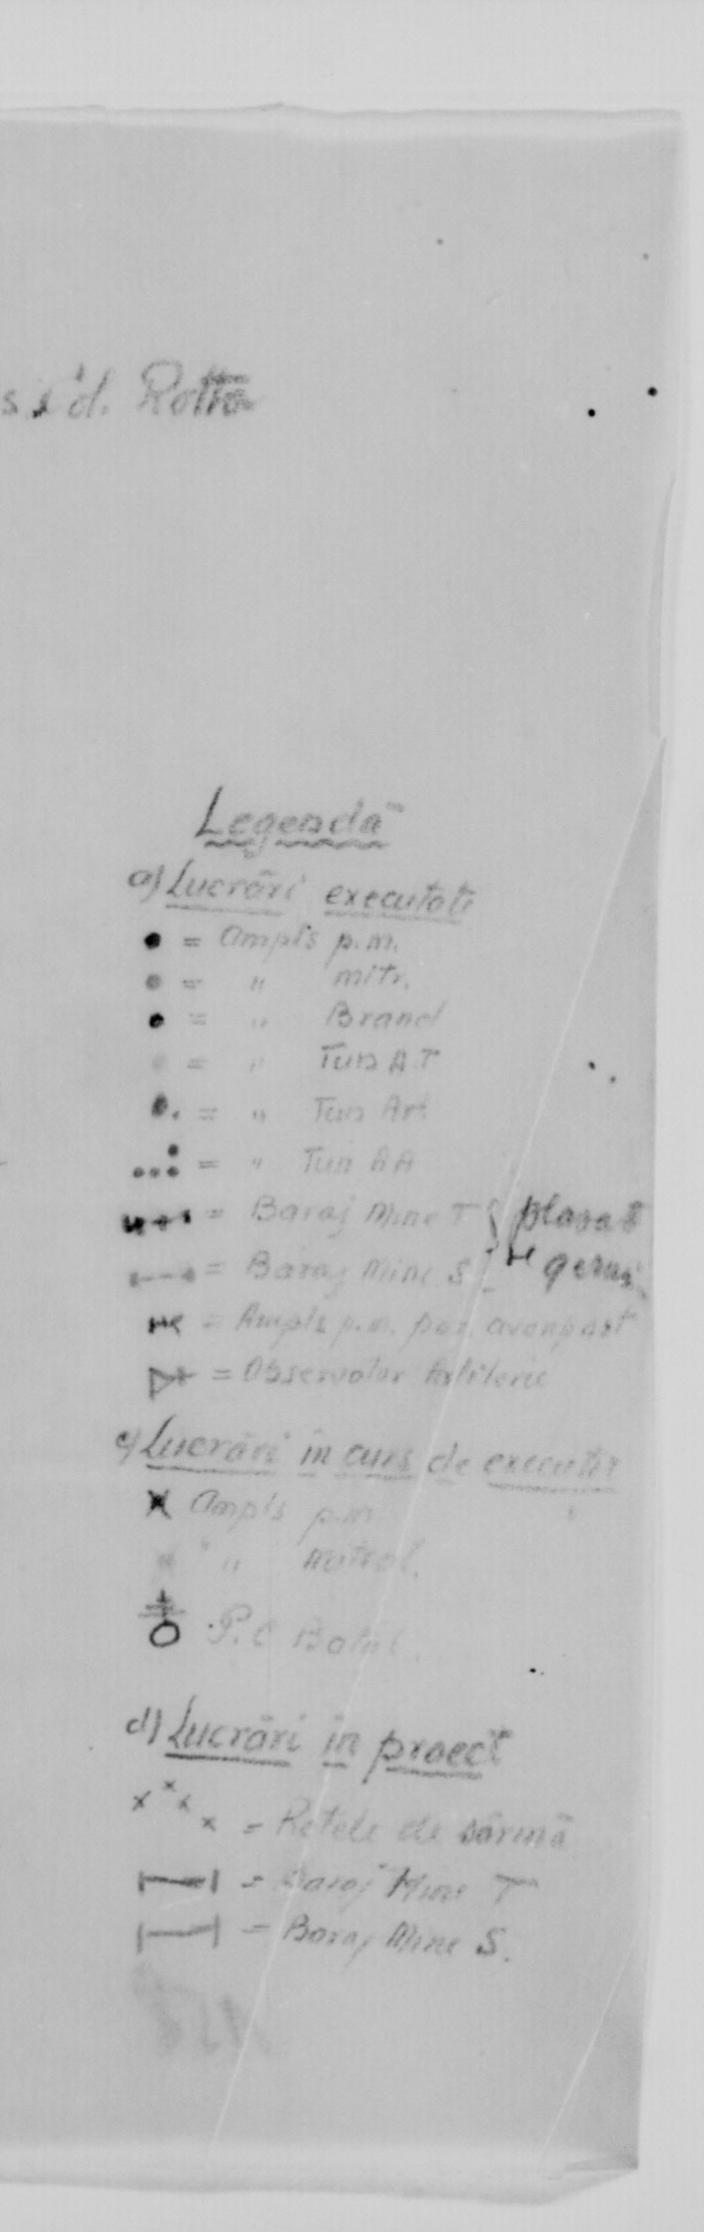 d. Rotta
Legendă
a) Lucrări executate
= Ampls p.m.
= " mitr.
= " Brand
= " Tun A.T
= " Tun Art
= " Tun AA
= Baraj Mine T } plasat
= Baraj Mine S germ.
= Ampls p.m. poz. avanpost
= Observator Artilerie
c) Lucrări în curs de execuție
Ampls p.m.
" " mitral.
P.C Batal.
d) Lucrări in proect
= Retele de sârmă
= Baraj Mine T
= Baraj Mine S.